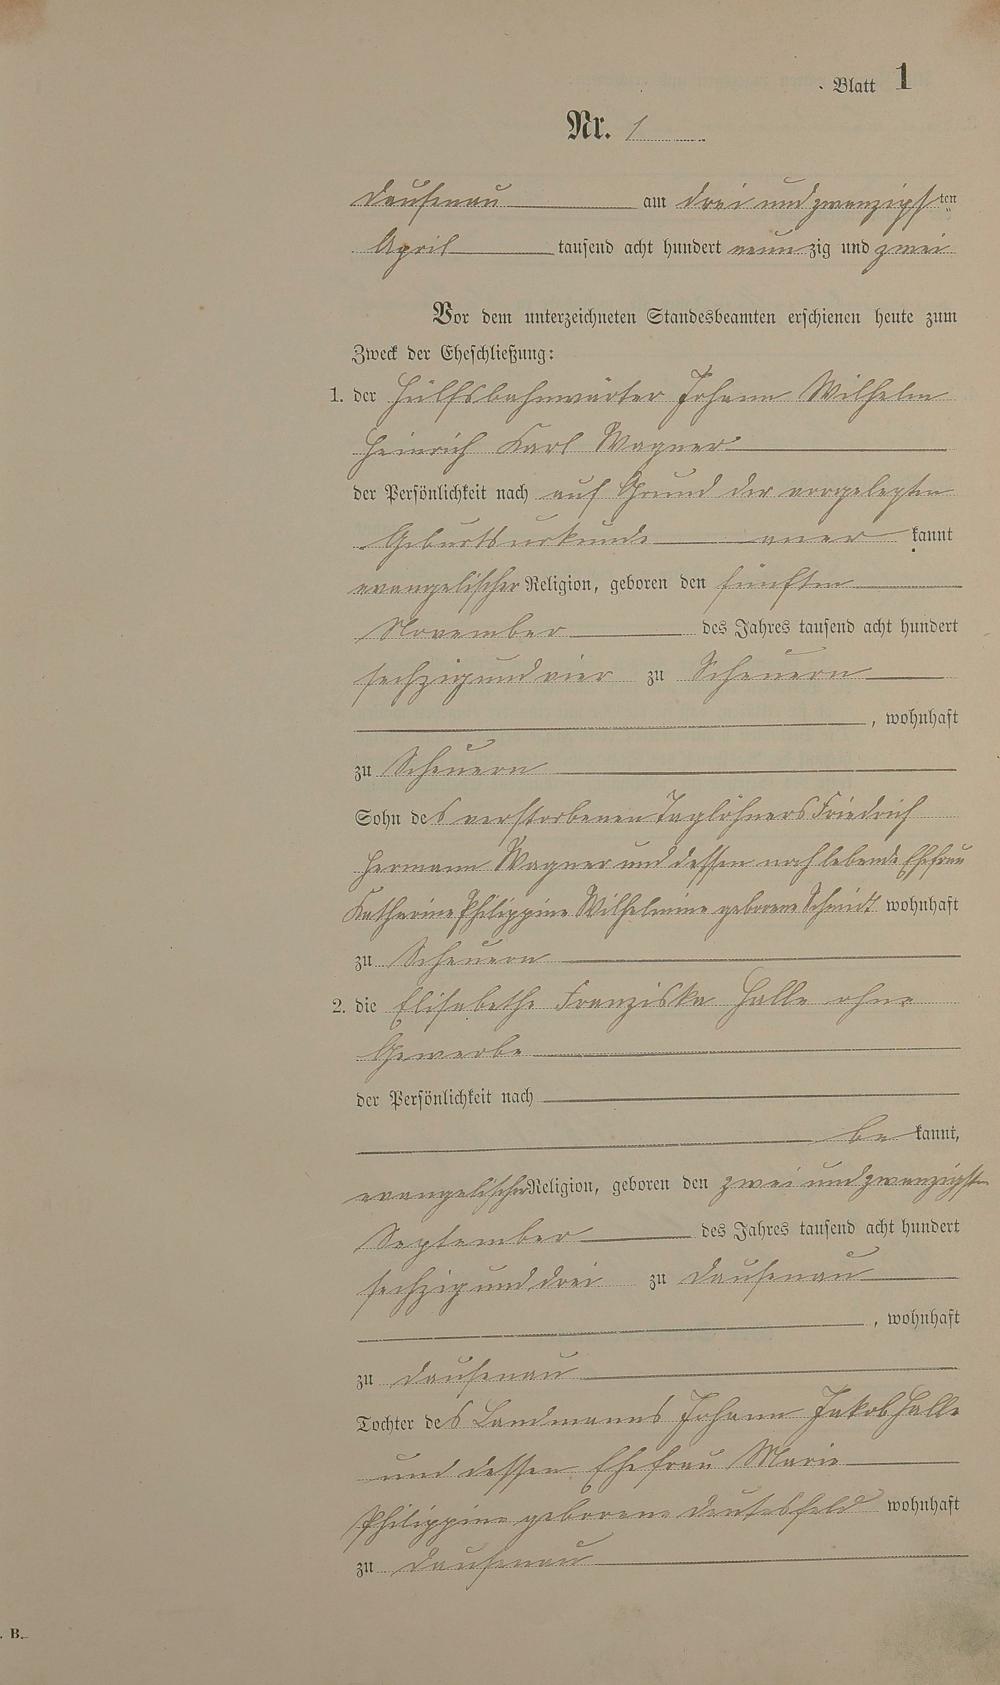 Blatt 1
Nr. 1
Dausenau am drei und zwanzigsten
April tausend acht hundert neunzig und zwei
Vor dem unterzeichneten Standesbeamten erschienen heute zum
Zweck der Eheschließung:
1. der Hülfsbahnwärter Johann Wilhelm
Heinrich Karl Wagner
der Persönlichkeit nach auf Grund der vorgelegten
Geburtsurkunde anerkannt
evangelischer Religion, geboren den fünften
November des Jahres tausend acht hundert
sechzig und vier zu Scheuern
, wohnhaft
zu Scheuern
Sohn des verstorbenen Taglöhners Friedrich
Hermann Wagner und dessen noch lebende Ehefrau
Katharine Philippine Wilhelmine geborene Schmidt wohnhaft
zu Scheuern
2. die Elisabethe Franziska Halle ohne
Gewerbe
der Persönlichkeit nach
bekannt,
evangelischer Religion, geboren den zwei und zwanzigsten
September des Jahres tausend acht hundert
sechzig und drei zu Dausenau
, wohnhaft
zu Dausenau
Tochter des Landmanns Johann Jakob Halle
und dessen Ehefrau Marie
Philippine geborene Deutesfeld wohnhaft
zu Dausenau
. B.